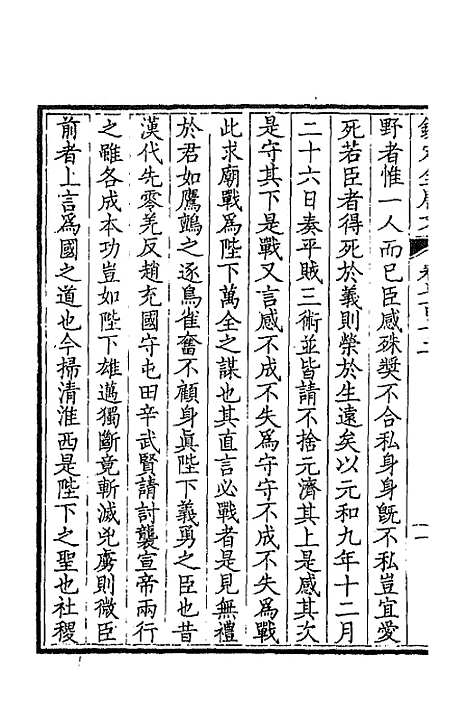 野者惟一人而已臣感殊奬不合私身身旣不私豈宜愛
死若臣者得死於義則榮於生遠矣以元和九年十二月
二十六日奏平賊三術並皆請不捨元濟其上是感其次
是守其下是戰又言感不成不失爲守守不成不失爲戰
此求廟戰爲陛下萬全之謀也其直言必戰者是見無禮
於君如鷹鸇之逐鳥雀奮不顧身眞陛下義勇之臣也昔
漢代先零羌反趙充國守屯田辛武賢請討襲宣帝兩行
之雖各成本功豈如陛下雄邁獨斷竟斬滅兇虜則微臣
前者上言爲國之道也今掃清淮西是陛下之聖也社稷